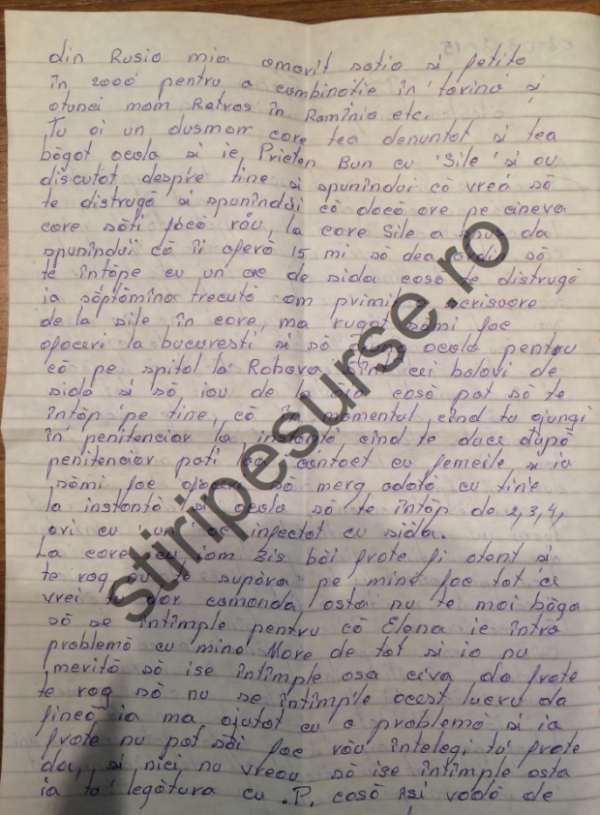 din Rusia mia omorît sotia si fetita
în 2000 pentru a combinatie în farina si
atunci mam Ratras în Romînia etc.
Tu ai un dusmam care tea denuntat si tea
băgat acolo si ie, Prieten Bun cu "Sile" si au
discutat despre tine si spunîndui că vrea să
te distrugă si spunîndui că dacă are pe cineva
care săti facă rău, la care Sile a spus da
spunîndui că îi oferă 15 mi să dea ordin să
te întăpe cu un ac de sida casă te distrugă
ia săptămîna trecută am primit o scrisoare
de la sile în care, ma rugat sămi fac
afaceri la bucuresti si să ajung acolo pentru
că pe spital la Rahova sînt cei balavi de
sida si să iau de la ăia casă pot să te
întăp pe tine, că în momentul cînd tu ajungi
în penitencior la instantă cînd te duci după
penitencior poti lua contact cu femeile si ia
sămi fac afaceri să merg adată cu tine
la instantă si acolo să te întăp de 2,3,4,
ori cu un ac infectat cu sida.
La care eu iam zis băi frate fi atent si
te rog nu te supăra pe mine fac tot ce
vrei tu dar comanda asta nu te mai băga
să se întîmple pentru că Elena ie întro
problemă cu mine Mare de tot si io nu
merită să ise întîmple asa ceva do frate
te rog să nu se întîmple acest lucru da
fincă ia ma ajutat cu o problemă si ia
frate nu pot săi fac rău întelegi tu frate
da, si nici nu vreau să ise întîmple asta
ia tu legătura cu .P. casă isi vadă de
stiripesurse.ro